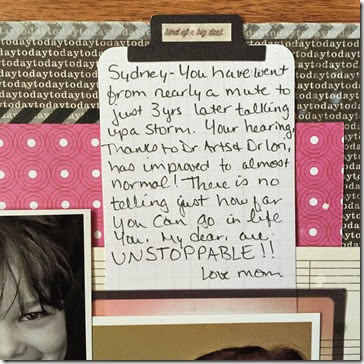 kind of a big deal
todaytodaytodaytodaytodaytodaytoday
Sydney - You have went
from nearly a mute to
just 3 yrs later talking
up a storm. Your hearing,
Thanks to Dr Arts & Dr Lori,
has improved to almost
normal! There is no
telling just how far
you can go in life
You, my dear, are
UNSTOPPABLE!!
Love mom